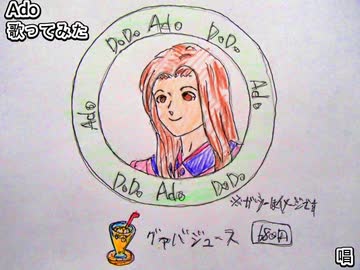 Ado
歌ってみた
DoDo Ado DoDo
Ado
Ado
DoDo Ado DoDo
はイメージです
グァバジュース
唱